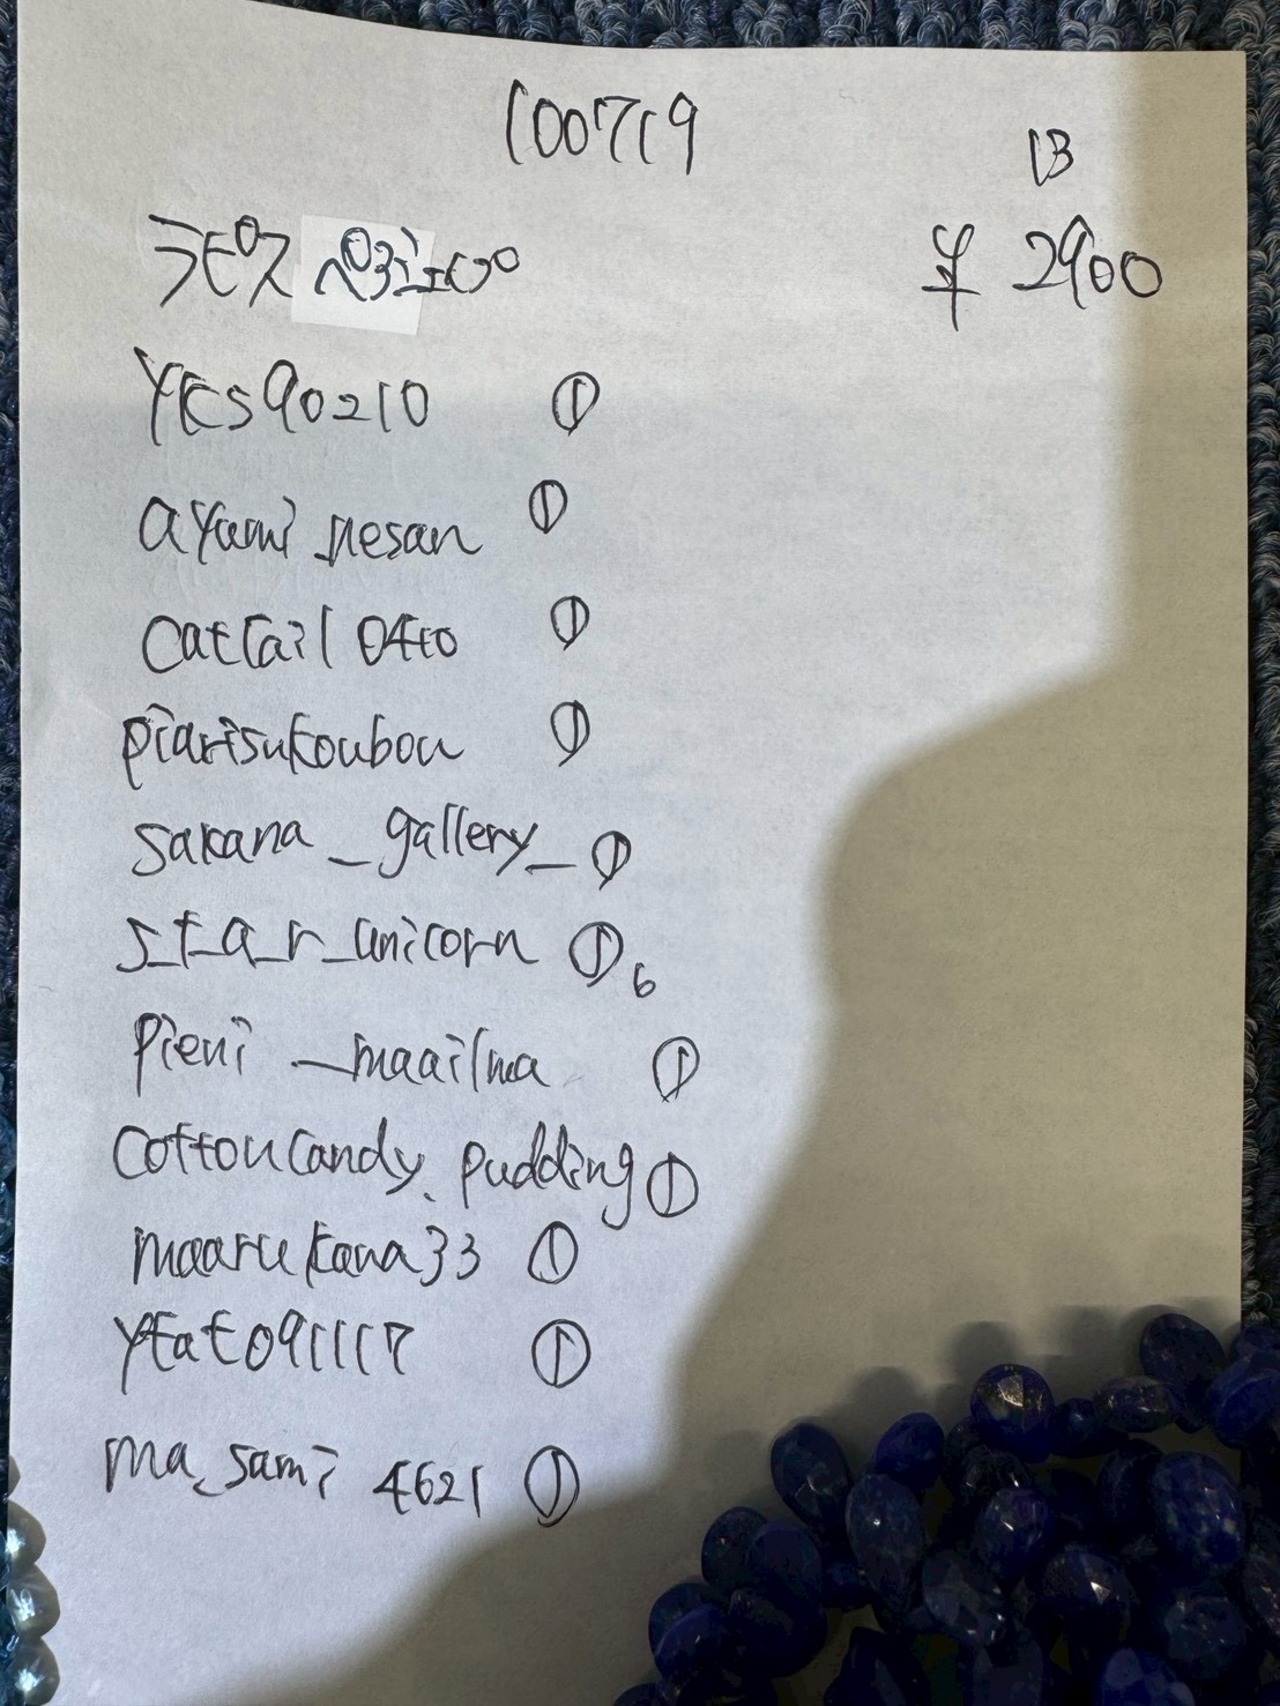 100719
13
ラピス ペヨシェイプ ¥2900
YKS90210 ①
ayumi_nesan ①
cattail0410 ①
piarisukoubou ①
sakana_gallery_ ①
s_t_a_r_unicorn ① 6
pieni_maailma ①
cottoncandy.pudding ①
maarukana33 ①
ytat091117 ①
ma_sami4621 ①